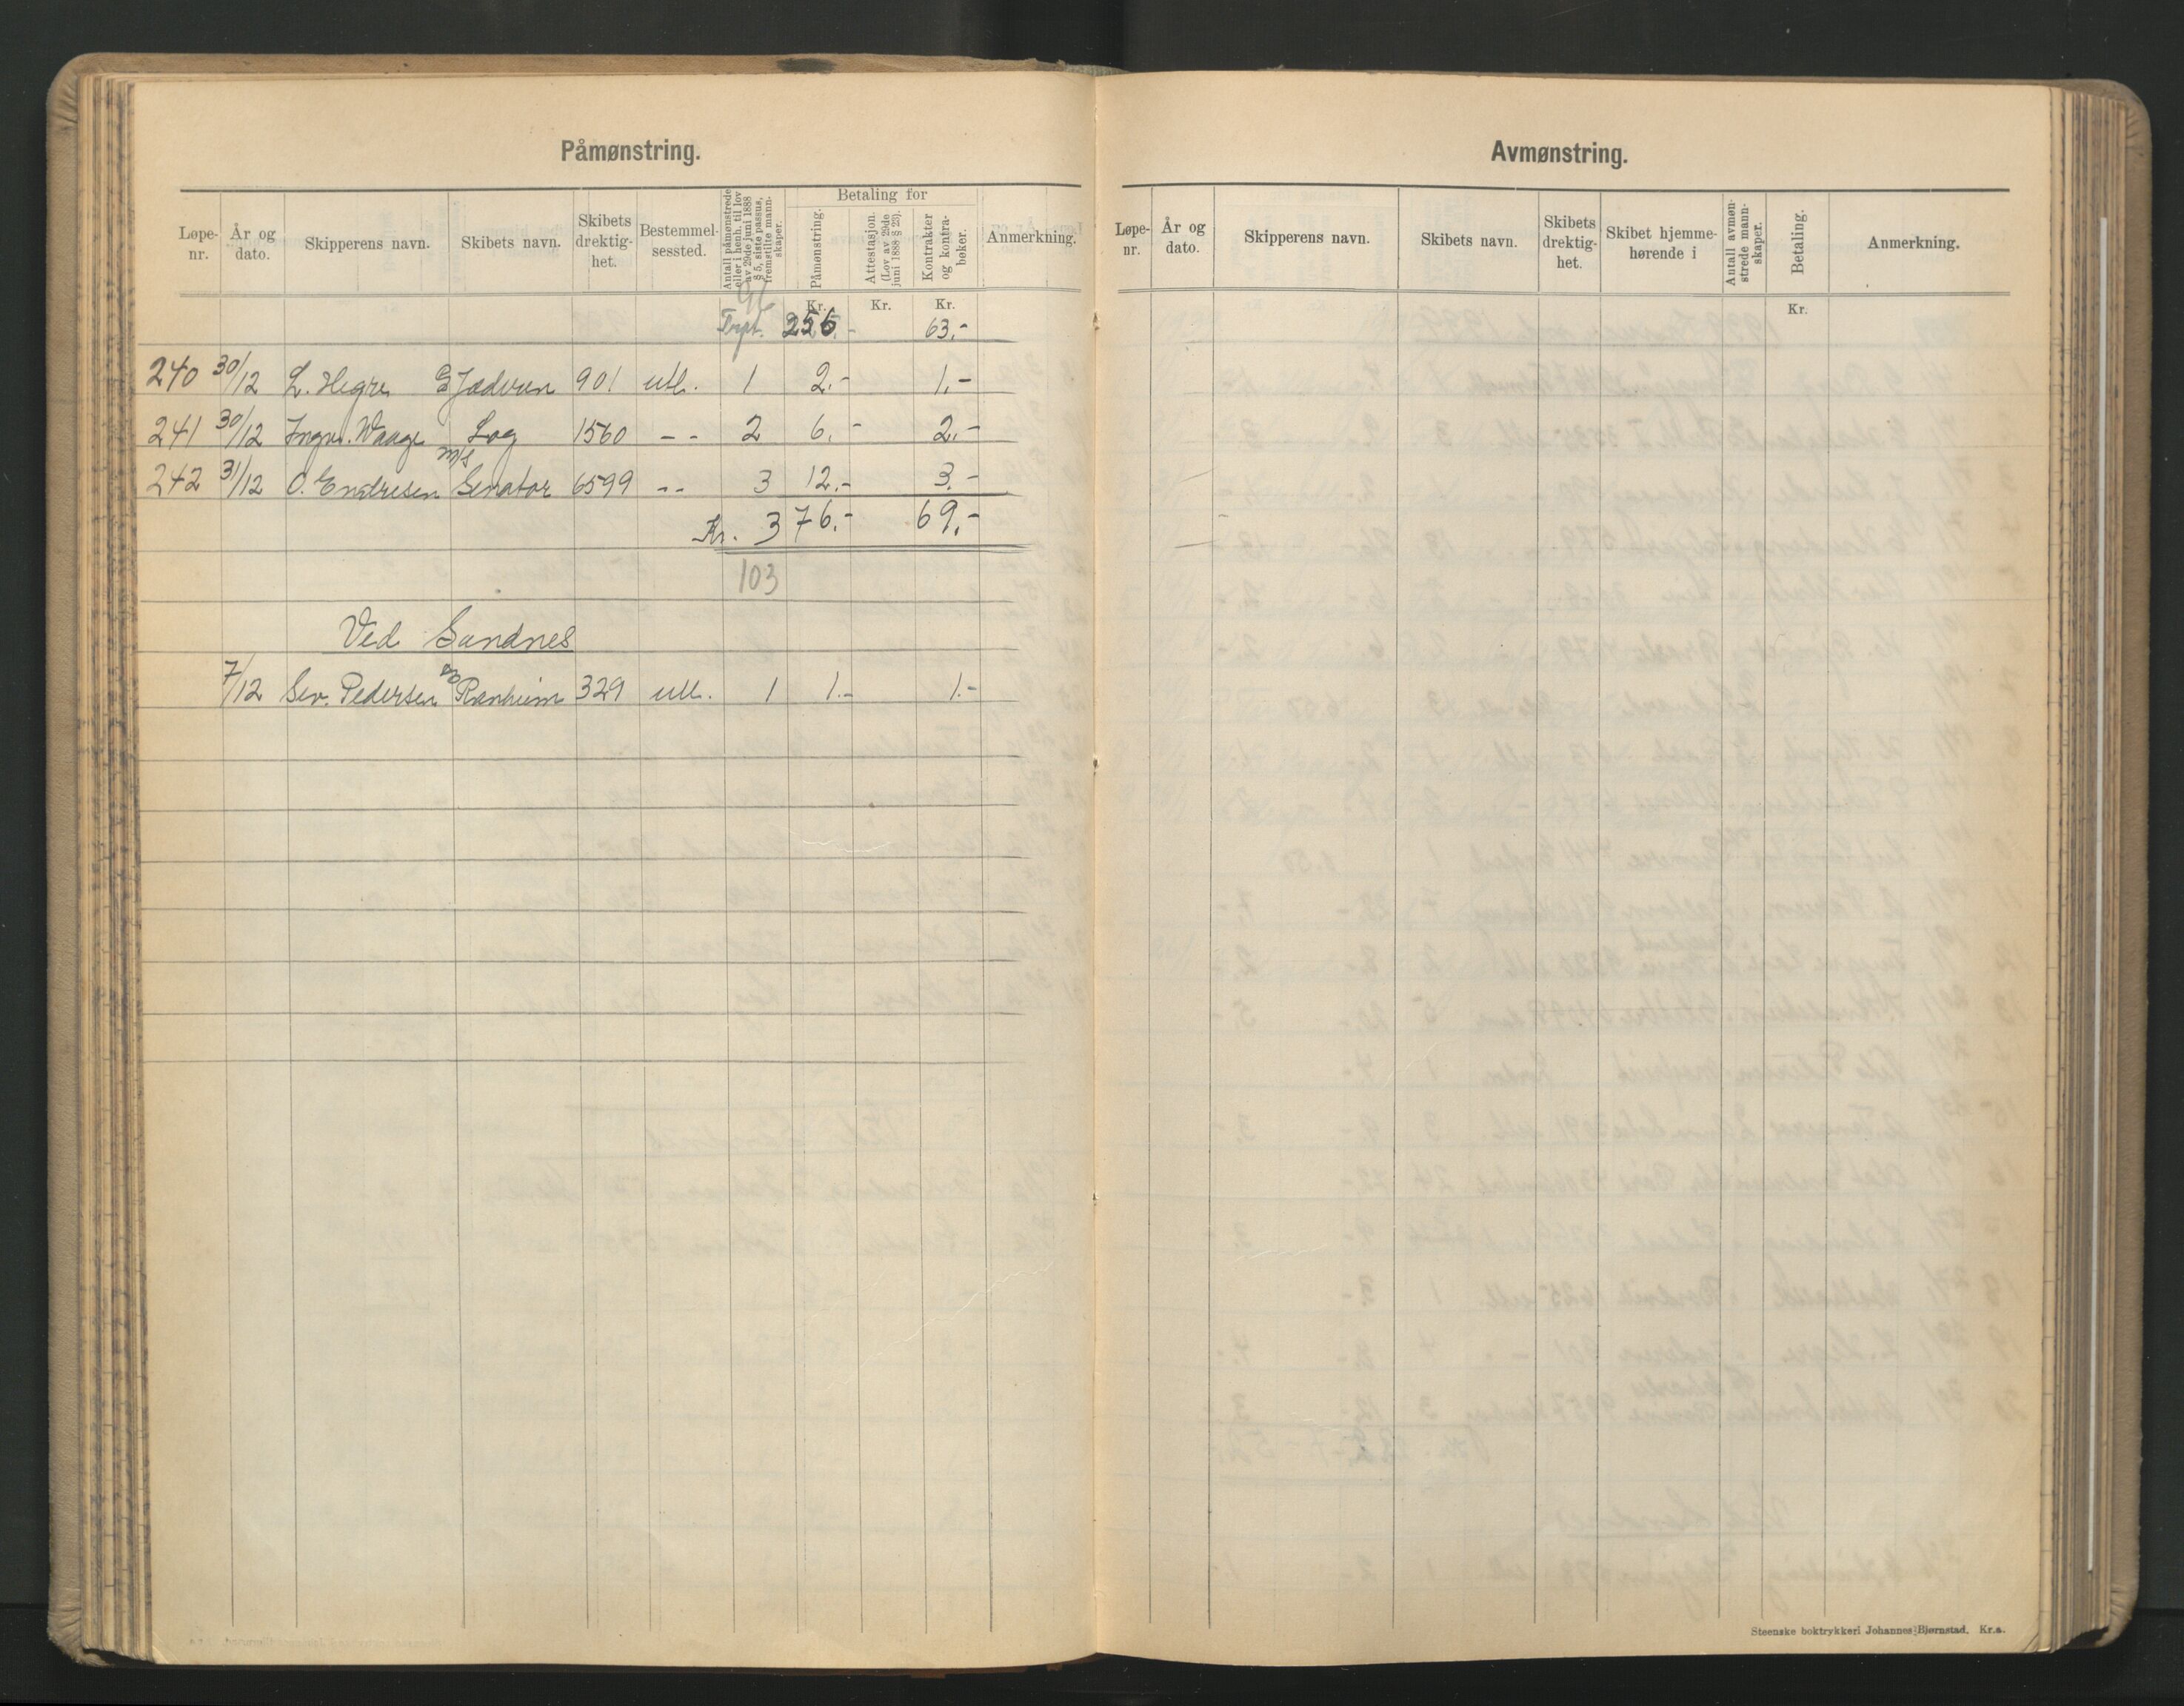 Påmønstring.
Løpe-nr. År og dato. Skipperens navn. Skibets navn. Skibets drektig-het. Bestemmel-sessted. Antall påmønstrede eller i henh. til lov av 29de juni 1888 § 5, siste passus, fremstilte mann-skaper. Betaling for Påmønstring. Attestasjon. (Lov av 29de juni 1888 § 23). Kontrakter og kontra-bøker. Anmerkning.
96 Kr. Kr. Kr.
Trpt. 256.- 63.-
240 30/12 L. Hegre Jæderen 901 utl. 1 2.- 1.-
241 30/12 Ingv. Waage Log 1560 -- 2 6.- 2.-
242 31/12 O. Endresen m/s Senator 6599 -- 3 12.- 3.-
Kr. 376.- 69.-
103
Ved Sandnes
7/12 Sev. Pedersen Ranheim 329 utl. 1 1.- 1.-
Avmønstring.
Løpe-nr. År og dato. Skipperens navn. Skibets navn. Skibets drektig-het. Skibet hjemme-hørende i Antall avmøn-strede mann-skaper. Betaling. Anmerkning.
Kr.
Steenske boktrykkeri Johannes Bjørnstad. Kr.a.